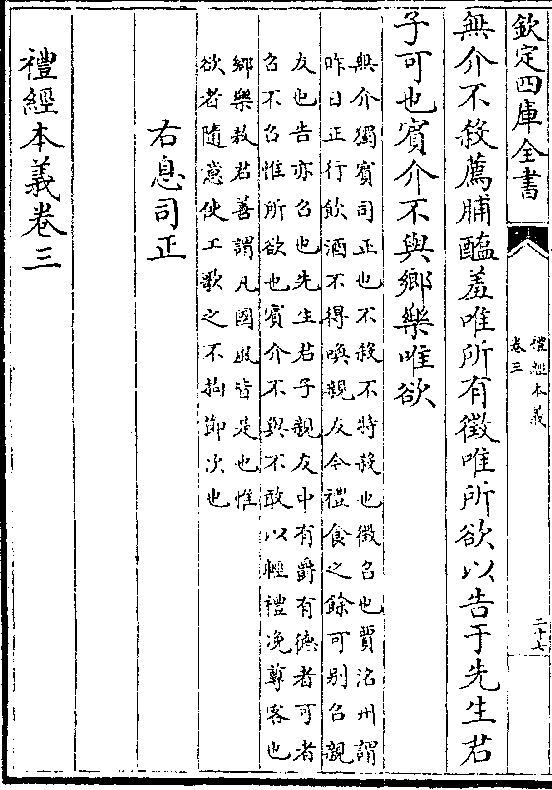 欽定四庫全書
禮經本義
卷三
二十七
無介不殺薦脯醢羞唯所有徵唯所欲以告于先生君
子可也賓介不與鄉樂唯欲
無介獨賓司正也不殺不特殺也徵召也賈洺州謂
昨日正行飲酒不得喚親友今禮食之餘可別召親
友也告亦召也先生君子親友中有爵有德者可者
召不召惟所欲也賓介不與不敢以輕禮浼尊客也
鄉樂敖君善謂凡國風皆是也惟
欲者隨意使工歌之不拘節次也
右息司正
禮經本義卷三